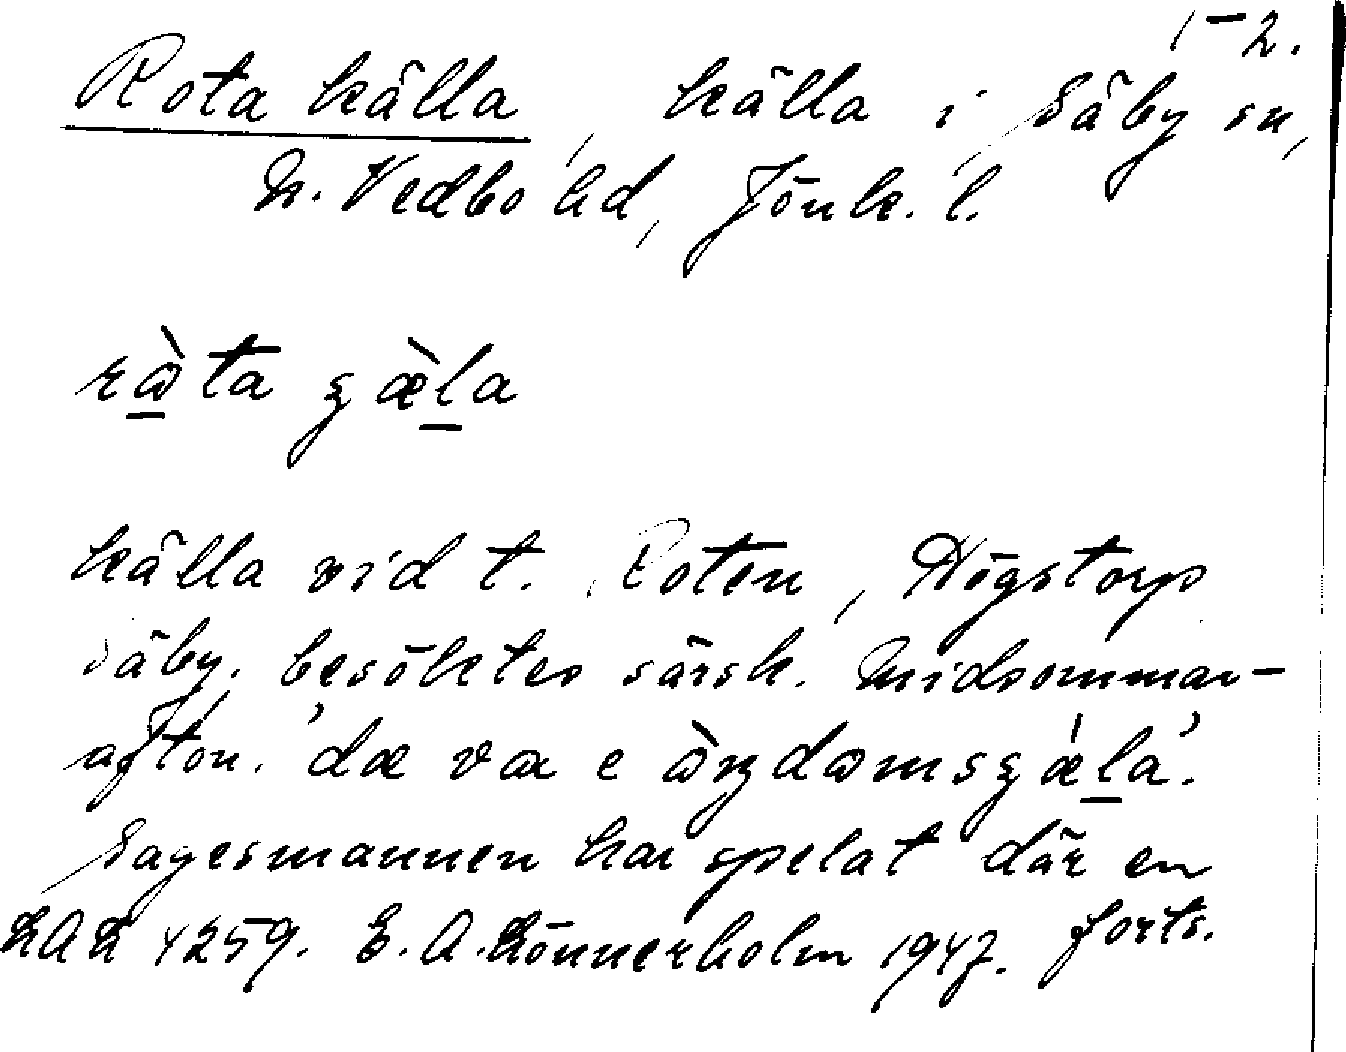 1-2.
Rota källa, källa i Säby sn,
N. Vedbo hd, Jönk. l.
rὼta ʒæ̀la
källa vid t. Roten, Högstorp
Säby. besöktes särsk. midsommar-
afton. 'dæ va e ὼŋdɷmsʒǽla'.
Sagesmannen har spelat där en
LAL 4259. E. A. Lönnerholm 1947. forts.